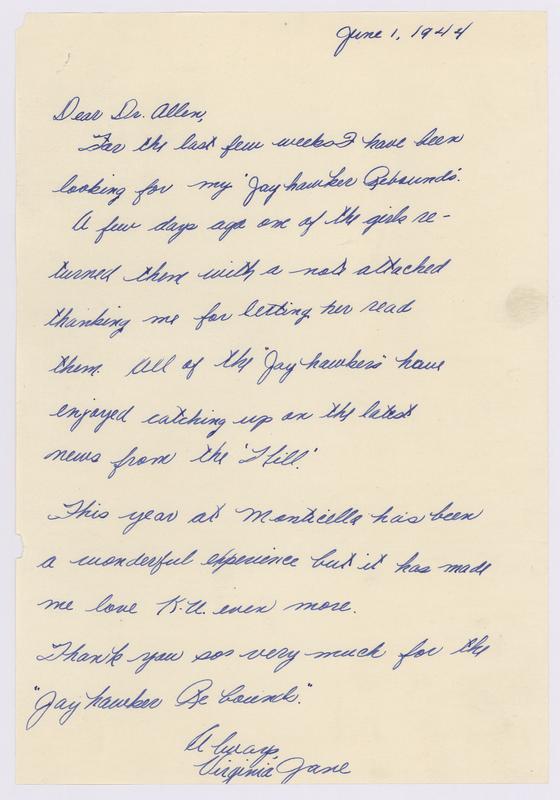 June 1, 1944
Dear Dr. Allen,
For the last few weeks I have been
looking for my "Jayhawker Rebounds".
A few days ago one of the girls re-
turned them with a note attached
thanking me for letting her read
them. All of the "Jayhawkers" have
enjoyed catching up on the latest
news from the 'Hill'.
This year at Monticello has been
a wonderful experience but it has made
me love K.U. even more.
Thank you so very much for the
"Jayhawker Rebounds."
Always,
Virginia Jane